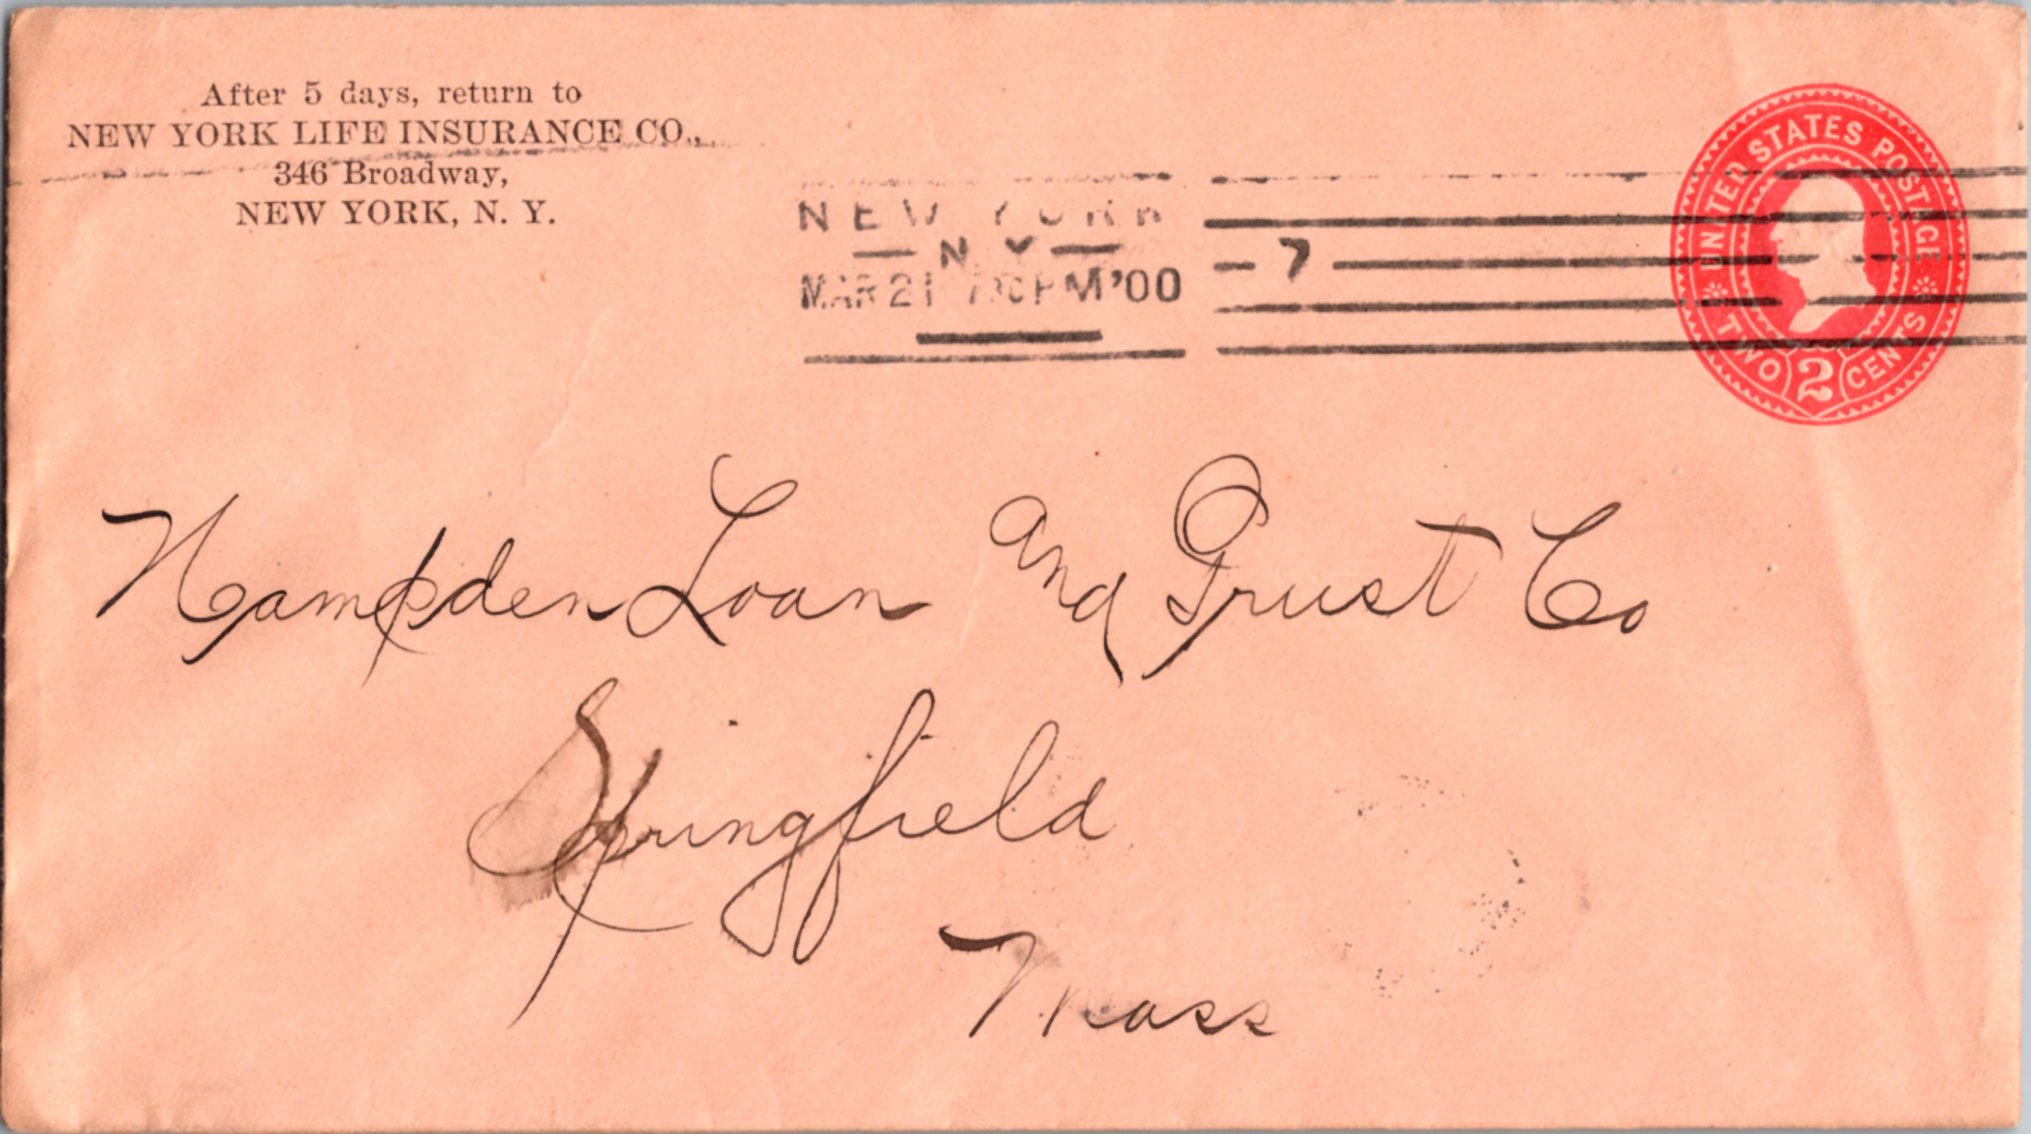 After 5 days, return to
NEW YORK LIFE INSURANCE CO.,
346 Broadway,
NEW YORK, N. Y.
NEW YORK
N Y
MAR 21 PM '00
7
UNITED STATES POSTAGE
TWO 2 CENTS
Hampden Loan and Trust Co
Springfield
Mass